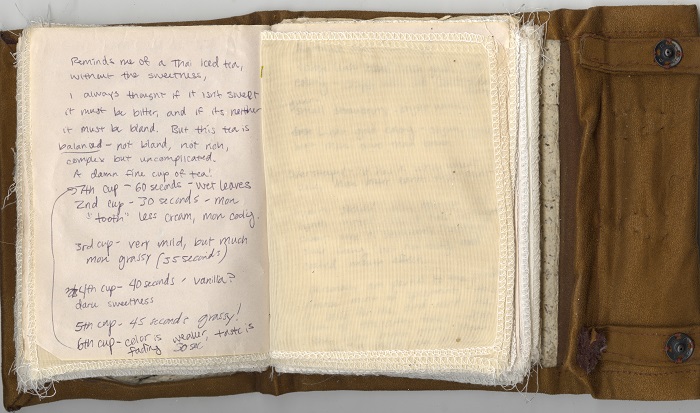 Reminds me of a Thai Iced tea,
without the sweetness,
I always thought if it isn't sweet
it must be bitter, and if its neither
it must be bland. But this tea is
balanced - not bland, not rich,
complex but uncomplicated.
A damn fine cup of tea!
7th cup - 60 seconds - wet leaves
2nd cup - 30 seconds - more
"tooth" less cream, more
3rd cup - very mild, but much
more grassy (35 seconds)
4th cup - 40 seconds - vanilla?
sweetness
5th cup - 45 seconds grassy!
6th cup - color is weaker, taste is
fading 50 sec